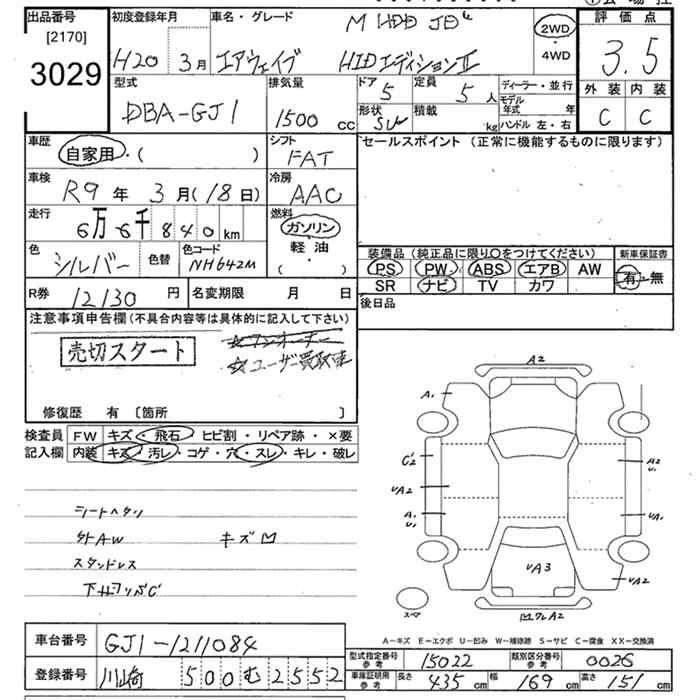 出品番号 初度登録年月 車名・グレード 評価点
[2170] H20 3月 エアウェイブ HIDエディションII 2WD・4WD 3.5
3029
型式 排気量 ドア 定員 ディーラー・並行 外装 内装
DBA-GJ1 1500 cc 5 5人 モデル年式 年 C C
形状 積載 kg ハンドル 左・右
車歴 シフト セールスポイント (正常に機能するものに限ります)
自家用・( ) FAT
車検 冷房
R9年 3月(18日) AAC
走行 燃料
6万6千840km ガソリン
軽油
( ・ )
色 色替 色コード 装備品 (純正品に限り○をつけてください) 新車保証書
シルバー NH642M PS PW ABS エアB AW 有・無
SR ナビ TV カワ
R券 12130円 名変期限 月 日 後日品
注意事項申告欄(不具合内容等は具体的に記入して下さい)
☆ワンオーナー
売切スタート ☆ユーザー買取車
修復歴 有 〔箇所 〕
検査員 FW キズ・飛石・ヒビ割・リペア跡・×要
記入欄 内装 キズ・汚レ・コゲ・穴・スレ・キレ・破レ
シートヘタリ
外AW キズ凹
スタッドレス
A2
A1
C2
UA2
A1
U1
A2
U1
UA1
UA2
UA3
スペア
A2
A-キズ E-エクボ U-凹み W-補修跡 S-サビ C-腐食 XX-交換済
車台番号 GJ1-1211084
型式指定番号 参考 15022 類別区分番号 参考 0026
登録番号 川崎 500 む 2552
車庫証明用 参考 長さ 435cm 幅 169cm 高さ 151cm